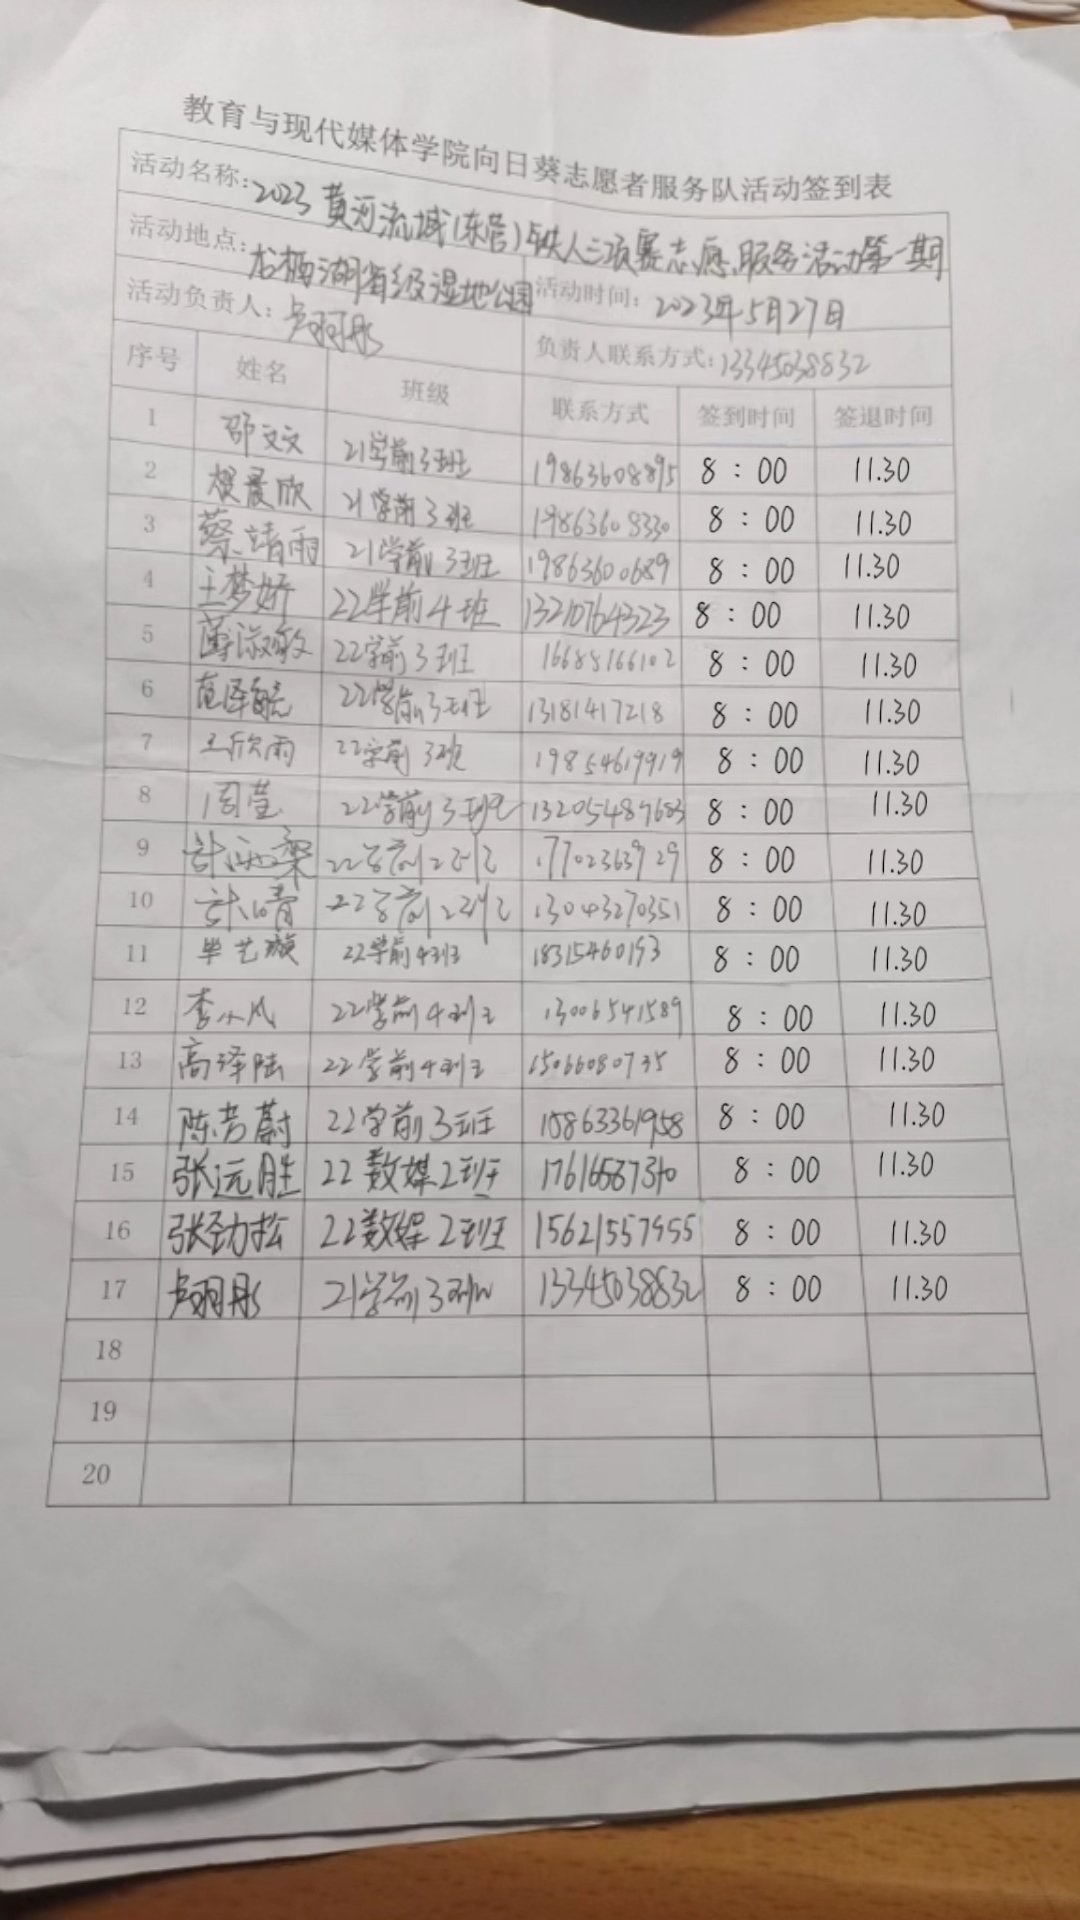 教育与现代媒体学院向日葵志愿者服务队活动签到表
活动名称:2023黄河流域(东营)铁人三项赛志愿服务活动第一期
活动地点:龙栖湖省级湿地公园 活动时间:2023年5月27日
活动负责人: 负责人联系方式:13345038832
序号 姓名 班级 联系方式 签到时间 签退时间
1 邵文文 21学前3班 19863608895 8:00 11.30
2 晨欣 21学前3班 19863608330 8:00 11.30
3 蔡靖雨 21学前3班 19863600689 8:00 11.30
4 王梦娇 22学前4班 13210764323 8:00 11.30
5 薄淑敏 22学前3班 16685166102 8:00 11.30
6 范泽毓 22学前3班 13181417218 8:00 11.30
7 王欣雨 22学前3班 19854619919 8:00 11.30
8 周莹 22学前3班 13205487683 8:00 11.30
9 22学前2班 17702363929 8:00 11.30
10 22学前2班 13043270351 8:00 11.30
11 毕艺璇 22学前4班 18315460193 8:00 11.30
12 李小凤 22学前4班 13006541589 8:00 11.30
13 高泽陆 22学前4班 15066080735 8:00 11.30
14 陈芳蔚 22学前3班 15863361958 8:00 11.30
15 张远胜 22数媒2班 8:00 11.30
16 张劲松 22数媒2班 15621557955 8:00 11.30
17 21学前3班 13345038832 8:00 11.30
18
19
20